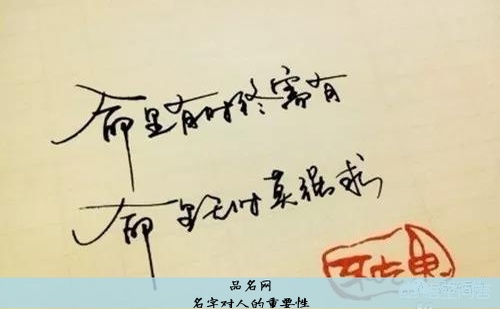 命里有时终需有
命里无时莫强求
品名网
名字对人的重要性